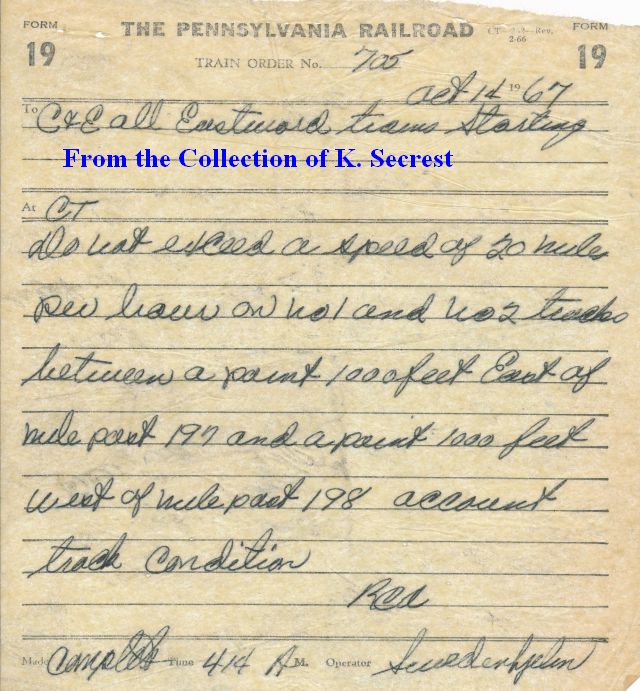 FORM 19 THE PENNSYLVANIA RAILROAD CT Rev. 2-66 FORM 19
TRAIN ORDER No. 705
Oct 14 1967
To C&E all Eastward trains Starting
From the Collection of K. Secrest
At CT
Do not exceed a speed of 20 mile
per hour on no 1 and no 2 tracks
between a point 1000 feet East of
mile post 197 and a point 1000 feet
west of mile post 198 account
track condition
RCA
Made Complete Time 414 A M. Operator